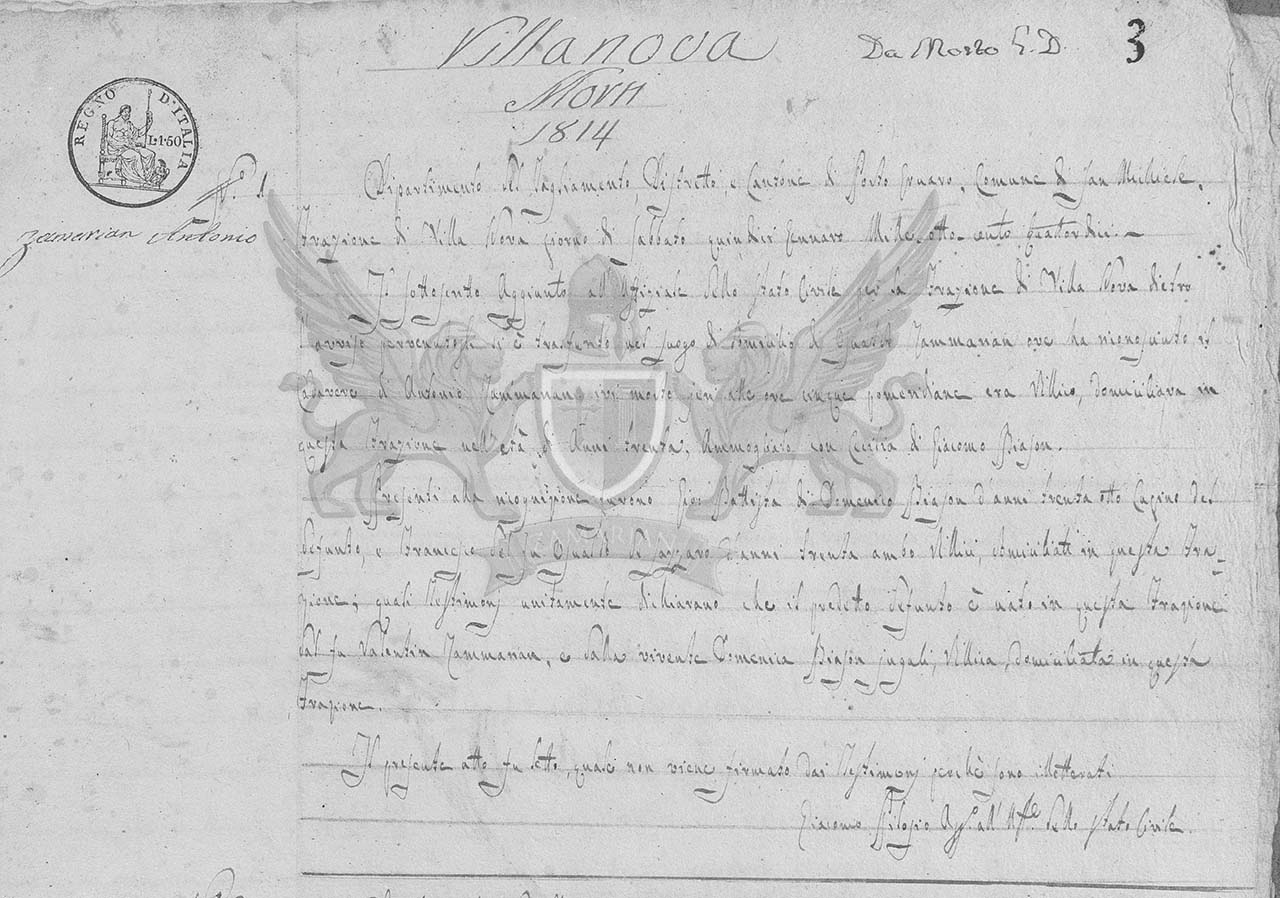 Villanova
Da Morto G. D.
3
Morti
1814
REGNO D'ITALIA
L:1·50
N.º 1
Zamarian Antonio
Dipartimento del Tagliamento Distretto, e Cantone di Porto Gruaro, Comune di San Michiele,
Frazione di Villa Nova giorno di Sabbato quindici Gennaro Mille otto cento quattordici.
Il sottoscritto Aggiunto al Uffiziale dello Stato Civile per la Frazione di Villa Nova dietro
l'avviso pervenutogli si è trasferito nel luogo di domicilio di Zammarian ove ha riconosciuto il
Cadavere di Antonio Zammarian ivi morto jeri alle ore cinque pomeridiane era Villico, domiciliava in
questa Frazione nell'età di Anni trenta, Ammogliato con Cecilia di Giacomo Biason.
Presenti alla ricognizione furono Gio: Battista di Domenico Biason d'anni trenta otto Cugino del
defunto, e Francesco del fu Osualdo di Lazzaro d'anni trenta ambo Villici, domiciliati in questa Fra-
zione; quali Testimonj unitamente dichiarano che il predetto defunto è nato in questa Frazione
dal fu Valentin Zammarian, e dalla vivente Domenica Biason jugali, Villica, domiciliata in questa
Frazione.
Il presente atto fu letto, quale non viene firmato dai Testimonj perchè sono illetterati
Giacomo Agg.º all'Uff.le dello Stato Civile.